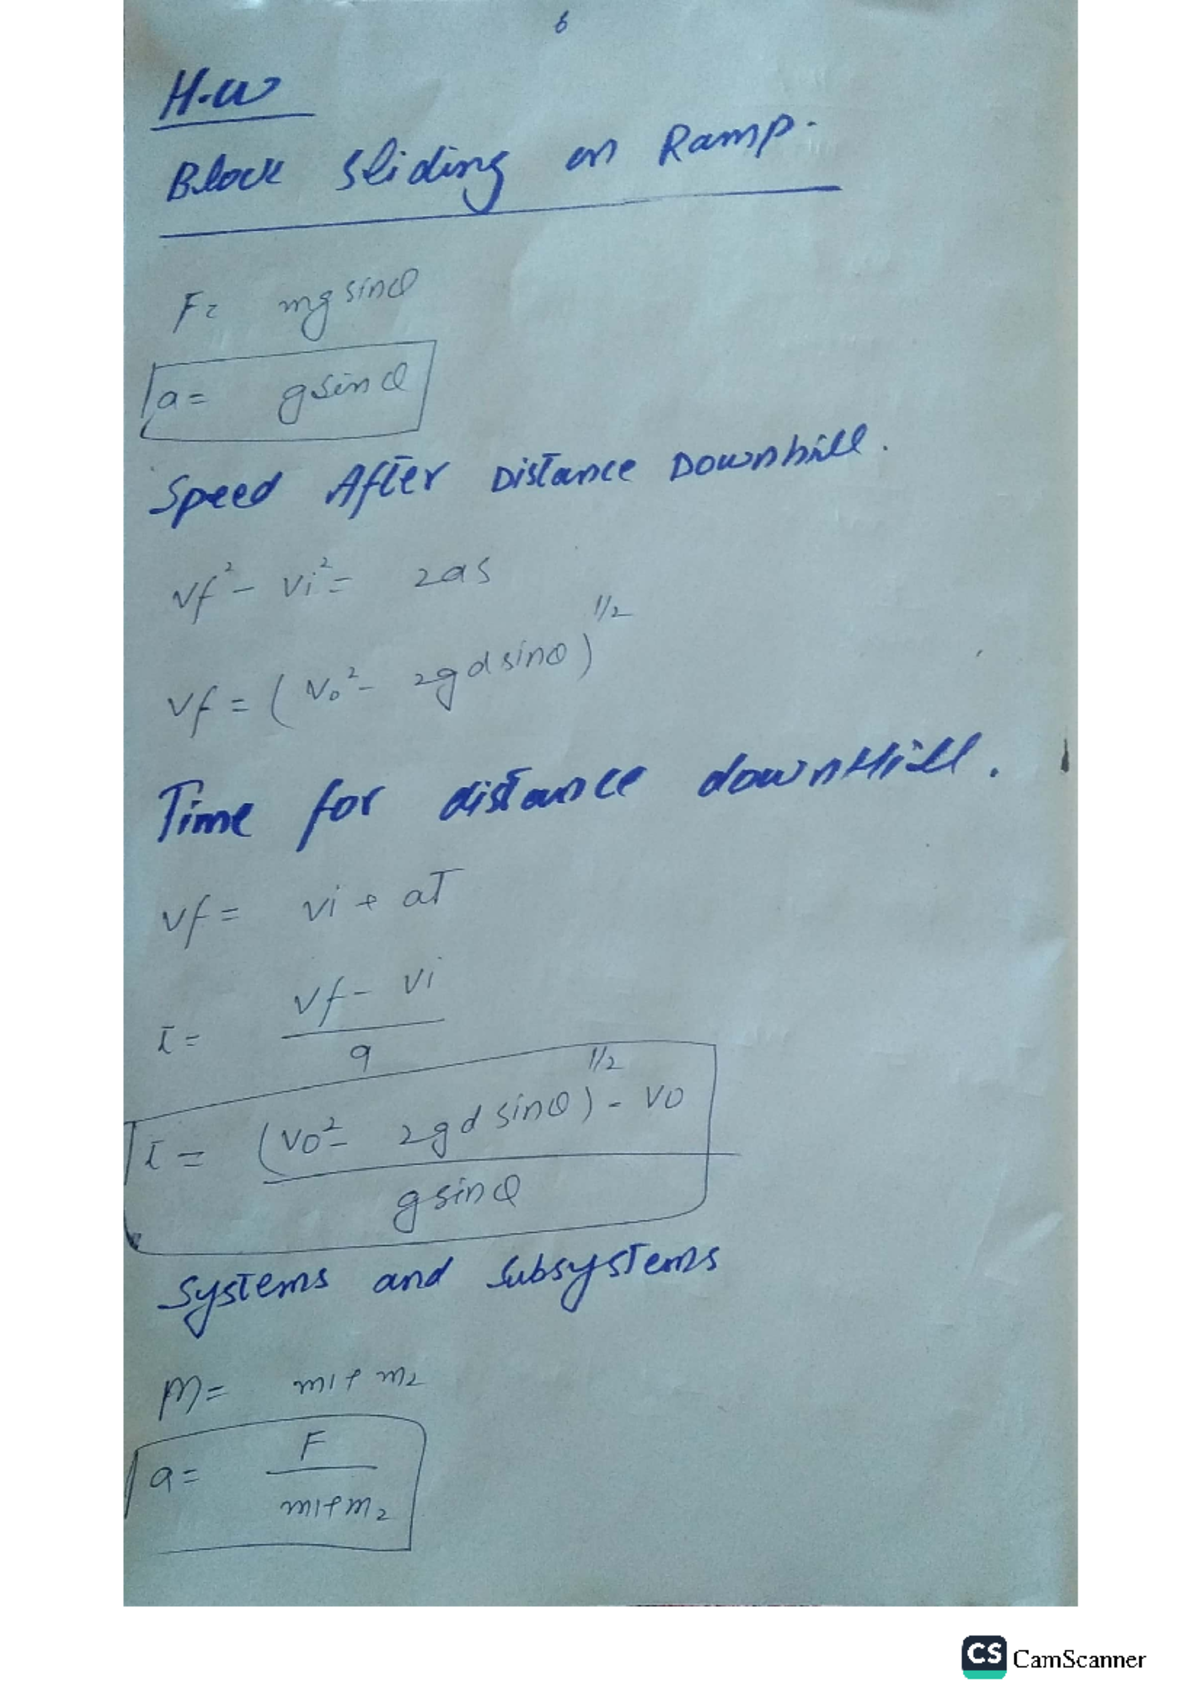 6
H.W
Block Sliding on Ramp.
F= mg sinθ
a= g sinθ
Speed After Distance Downhill.
vf² - vi² = 2as
vf = (v₀² - 2gd sinθ)^1/2
Time for distance downHill.
vf = vi + aT
t = (vf - vi) / a
t = ((v₀² - 2gd sinθ)^1/2 - v₀) / g sinθ
Systems and Subsystems
M= m1 + m2
a= F / (m1+m2)
CS CamScanner